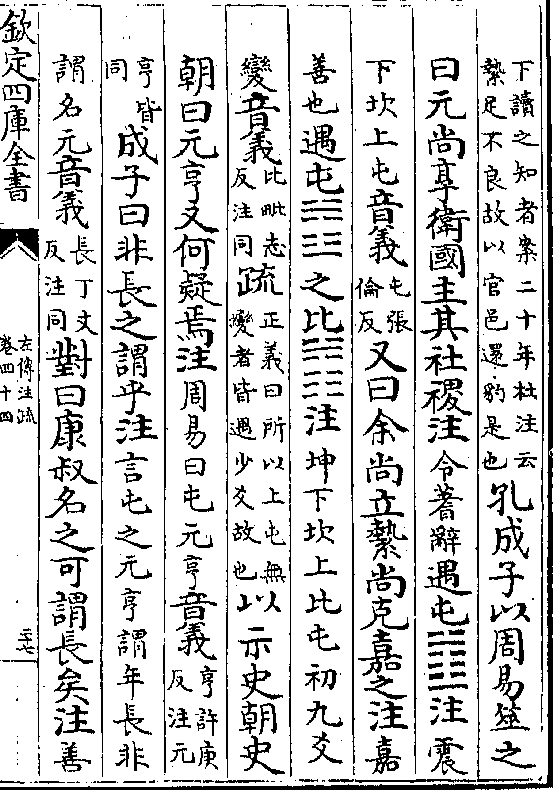 下讀之知者案二十年杜注云
縶足不良故以官邑還豹是也
孔成子以周易筮之
曰元尚享衛國主其社稷注令蓍辭遇屯䷂注震
下坎上屯音義
屯張
倫反
又曰余尚立縶尚克嘉之注嘉
善也遇屯䷂之比䷇注坤下坎上比屯初九爻
變音義
比毗志
反注同
疏
正義曰所以上屯無
變者皆遇少爻故也
以示史朝史
朝曰元亨又何疑焉注周易曰屯元亨音義
亨許庚
反注元
亨皆
同
成子曰非長之謂乎注言屯之元亨謂年長非
謂名元音義
長丁丈
反注同
對曰康叔名之可謂長矣注善
欽定四庫全書
左傳注疏
卷四十四
三七